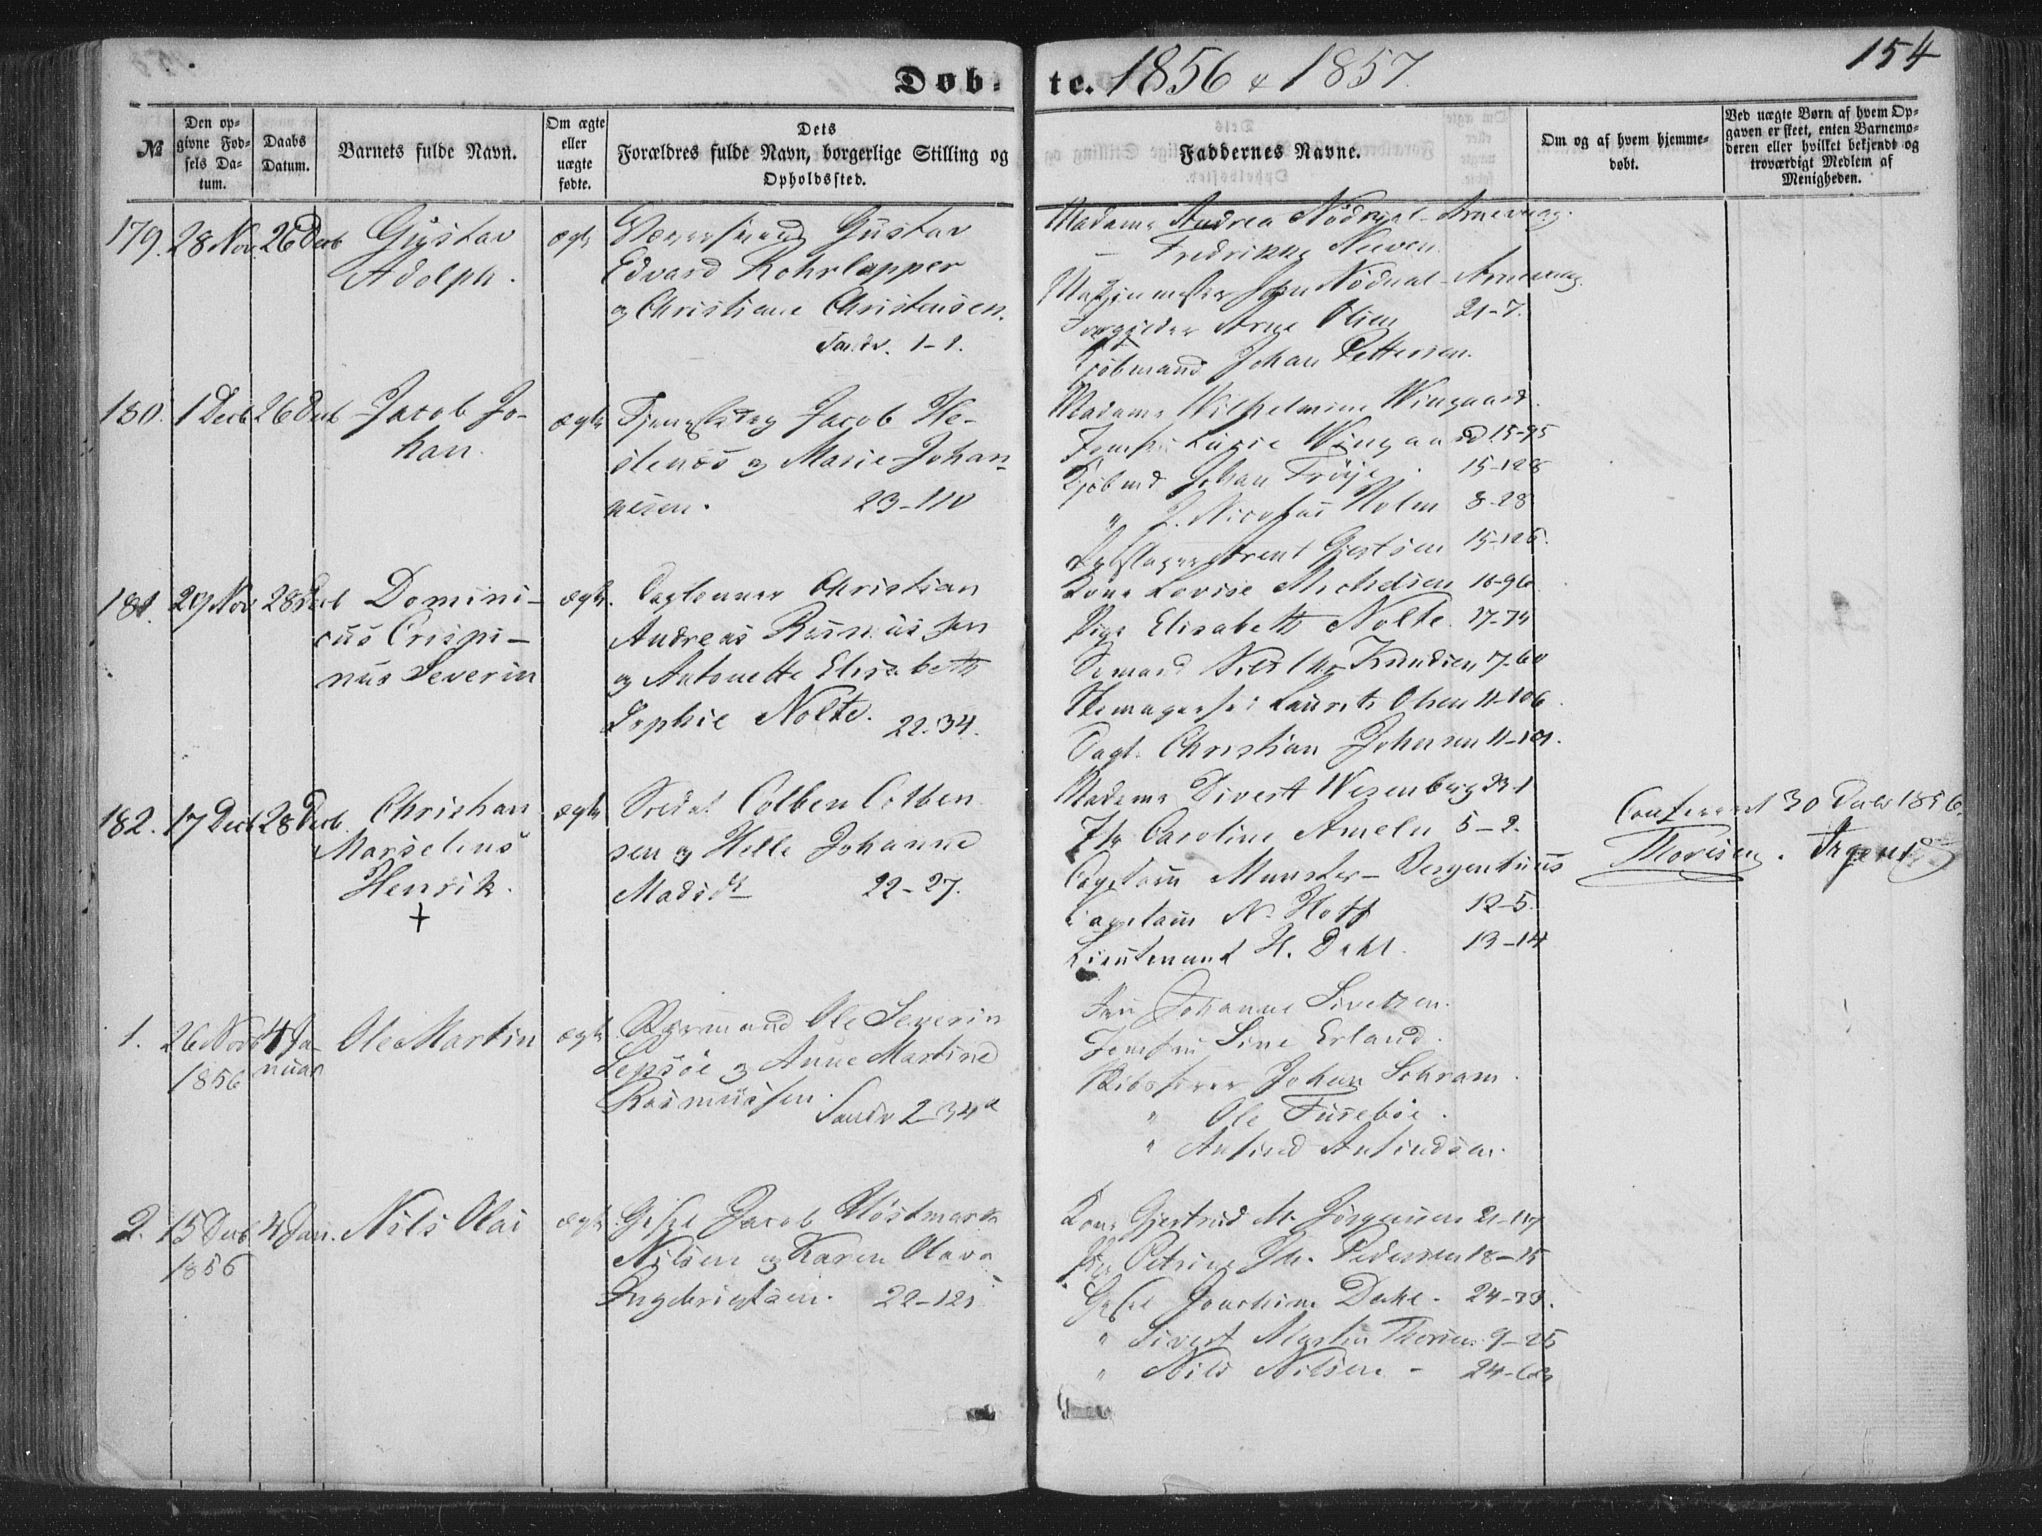 154
Døb- te. 1856 & 1857.
№
Den op-
givne Fød-
sels Da-
tum.
Daabs
Datum.
Barnets fulde Navn.
Om ægte
eller
uægte
fødte.
Dets
Forældres fulde Navn, borgerlige Stilling og
Opholdssted.
Faddernes Navne.
Om og af hvem hjemme-
døbt.
Ved uægte Børn af hvem Op-
gaven er skeet, enten Barnemo-
deren eller hvilket bekjendt og
troværdigt Medlem af
Menigheden.
179. 28 Nov. 26 Decb Gustav
Adolph.
ægte
Gustav
Edvard Rohrlapper
og Christiane Christensen.
Sandv. 1-1.
Madame Andrea
Fredrikke
21-7.
Arne Olsen
Kjøbmand Johan Pettersen.
180. 1 Decb 26 Decb Jacob Jo-
han.
ægte
Jacob He-
stenes og Marie Johan-
nesen. 23-110
Madame Wilhelmine Wingaard.
Jomfru Lucie Wingaard 15-95
Kjøbmd Johan Frøije. 15-128
" J. Nicolai Holm 8-28
Gjertsen 15-126.
181. 29 Nov 28 Decb Domini-
cus Crispi-
nus Severin
ægte.
Dagleiner Christian
Andreas Rasmussen
og Antonette Elisabeth
Sophie Nolte. 22-34.
Kone Lovise Michelsen 16-96
Pige Elisabeth Nolte. 17-74
Sømand Knudsen 7-60
Skomagers Laurits Olsen 11-106
Dagl. Christian Johnsen 11-101.
182. 17 Decb 28 Decb. Christian
Marselius
Henrik.
+
ægte
Soldat Colben Colben
sen og Helle Johanne
Madsdr 22-27.
Madame Divert Wesenberg 23-1
Caroline Ameln 5-2.
Capitain Munster - Bergenhuus
Capitain N. Hoff 12-5.
Lieutenant H. Dahl. 13-14
Confereret 30 Decbr 1856.
Thorisen.
1. 26 Novb
1856
4 Ja-
nuar
Ole Martin
ægte
Ole Severin
Lepsøe og Anne Martine
Rasmussen.
Sandv 2-34a
Fru Johanne Sivertsen.
Jomfru Sine Erland.
Skibsfører Johan Schram.
" Ole Furebøe.
" Anfind Anfindsen.
2. 15 Decb
1856
4 Jan. Nils Olai
ægte
Gesel Jacob Høstmark
Nilsen og Karen Olava
Ingebrigtsen. 22-121
Kone Gjertrud M. Jørgensen 21-117
Pige Petrine Pedersen 18-15
Gesel Joachim Dahl. 24-33.
" Sivert Martin Thorsen. 9-25
" Nils Nilsen - 24-62